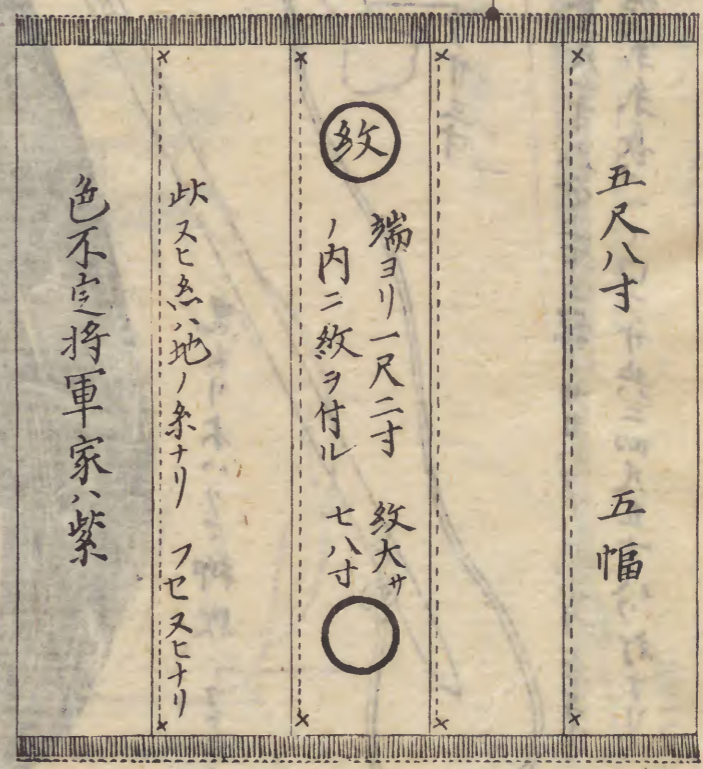 五尺八寸 五幅
紋
端ヨリ一尺二寸 紋大サ
ノ内ニ紋ヲ付ル 七八寸
此ヌヒ糸ハ地ノ糸ナリ フセヌヒナリ
色不定将軍家ハ紫